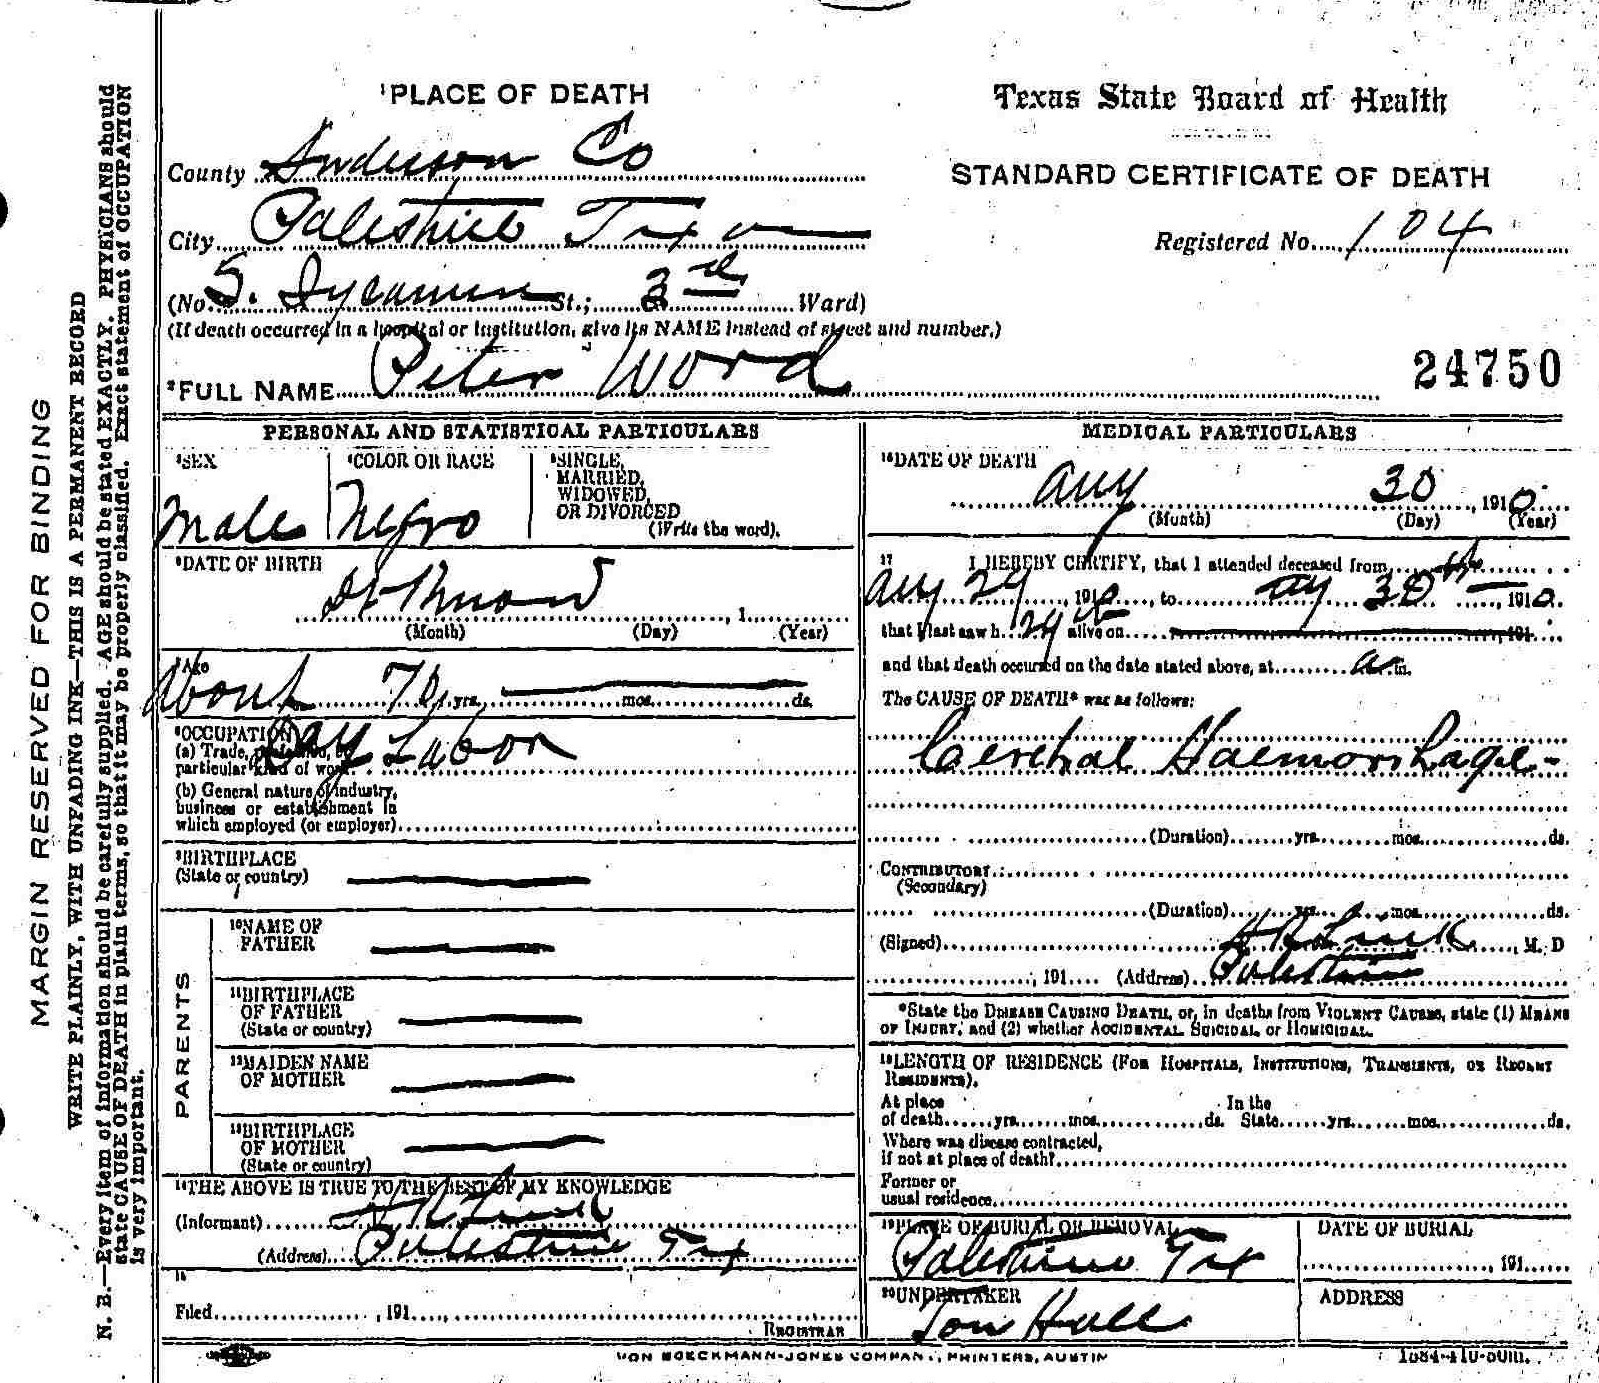 ¹PLACE OF DEATH
County Anderson Co
City Palestine Tex
(No. S. Sycamore St.; 3rd Ward)
(If death occurred in a hospital or institution, give its NAME instead of street and number.)
²FULL NAME Peter Word
Texas State Board of Health
STANDARD CERTIFICATE OF DEATH
Registered No. 104
24750
PERSONAL AND STATISTICAL PARTICULARS
³SEX
Male
⁴COLOR OR RACE
Negro
⁵SINGLE,
MARRIED,
WIDOWED,
OR DIVORCED
(Write the word).
⁶DATE OF BIRTH
Dt Know
, 1
(Month) (Day) (Year)
⁷AGE
About yrs. mos. ds.
⁸OCCUPATION
(a) Trade, profession, or
particular kind of work Day Labor
(b) General nature of industry,
business or establishment in
which employed (or employer)
⁹BIRTHPLACE
(State or country)
PARENTS
¹⁰NAME OF
FATHER
¹¹BIRTHPLACE
OF FATHER
(State or country)
¹²MAIDEN NAME
OF MOTHER
¹³BIRTHPLACE
OF MOTHER
(State or country)
¹⁴THE ABOVE IS TRUE TO THE BEST OF MY KNOWLEDGE
(Informant) H R Link
(Address) Palestine Tex
¹⁵
Filed , 191
REGISTRAR
MEDICAL PARTICULARS
¹⁶DATE OF DEATH
Aug 30, 1910
(Month) (Day) (Year)
¹⁷ I HEREBY CERTIFY, that I attended deceased from
Aug 29, 1910, to Aug 30th, 1910.
that I last saw h 29th alive on 191
and that death occurred on the date stated above, at a m.
The CAUSE OF DEATH* was as follows:
Cerebral Haemorrhage-
(Duration) yrs. mos. ds.
CONTRIBUTORY
(Secondary)
(Duration) yrs. mos. ds.
(Signed) H R Link, M. D
, 191 (Address) Palestine
*State the DISEASE CAUSING DEATH, or, in deaths from VIOLENT CAUSES, state (1) MEANS
OF INJURY, and (2) whether ACCIDENTAL SUICIDAL or HOMICIDAL.
¹⁸LENGTH OF RESIDENCE (FOR HOSPITALS, INSTITUTIONS, TRANSIENTS, OR RECENT
RESIDENTS).
At place In the
of death yrs. mos. ds. State yrs. mos. ds.
Where was disease contracted,
if not at place of death?
Former or
usual residence
¹⁹PLACE OF BURIAL OR REMOVAL
Palestine Tex
DATE OF BURIAL
, 191
²⁰UNDERTAKER
Hall
ADDRESS
VON BOECKMANN-JONES COMPANY, PRINTERS, AUSTIN
1684-410-50m.
MARGIN RESERVED FOR BINDING
WRITE PLAINLY, WITH UNFADING INK—THIS IS A PERMANENT RECORD
N. B.—Every item of information should be carefully supplied. AGE should be stated EXACTLY. PHYSICIANS should
state CAUSE OF DEATH in plain terms, so that it may be properly classified. Exact statement of OCCUPATION
is very important.